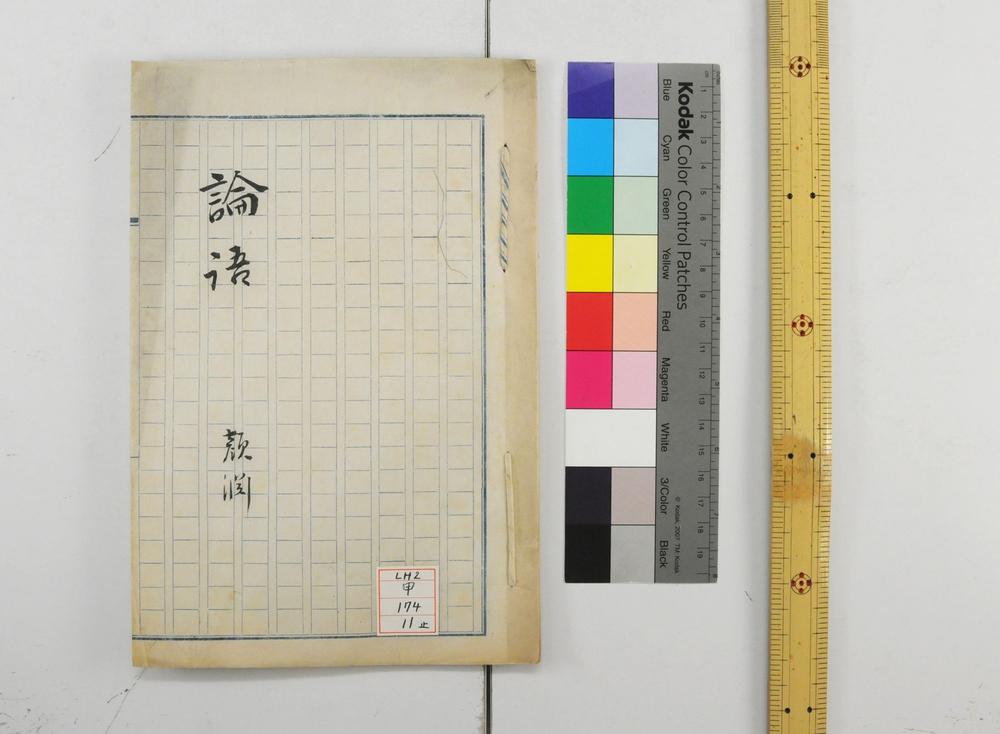 論語
顔淵
LH2
甲
174
11止
Kodak Color Control Patches
Blue
Cyan
Green
Yellow
Red
Magenta
White
3/Color
Black
© Kodak, 2007 TM: Kodak
cm
1
2
3
4
5
6
7
8
9
10
11
12
13
14
15
16
17
18
19